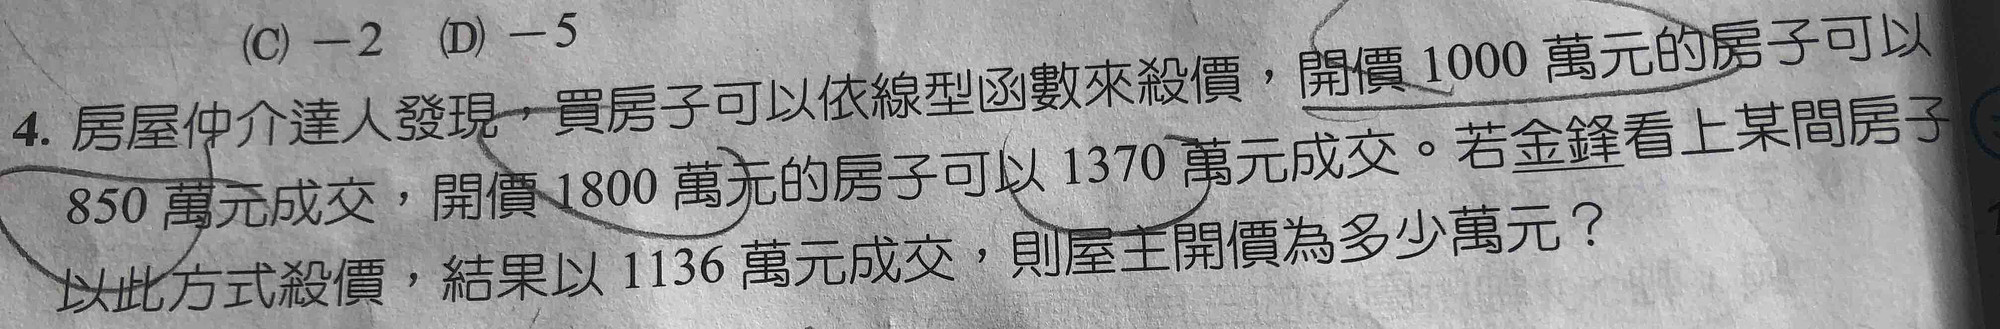 (C) −2 (D) −5
4. 房屋仲介達人發現，買房子可以依線型函數來殺價，開價 1000 萬元的房子可以
850 萬元成交，開價 1800 萬元的房子可以 1370 萬元成交。若金鋒看上某間房子
以此方式殺價，結果以 1136 萬元成交，則屋主開價為多少萬元？